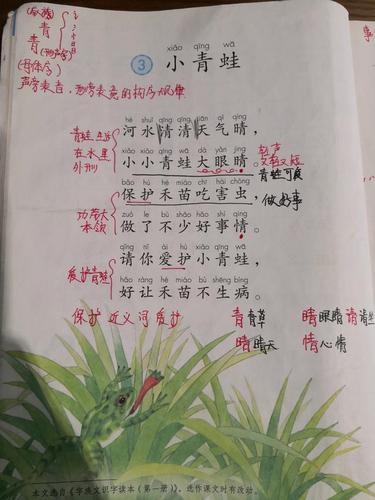 青
青
(母体字)
声旁表音，形旁表意的构字规律
xiǎo qīng wā
3 小青蛙
hé shuǐ qīng qīng tiān qì qíng
河水清清天气晴，
青蛙
在水里
外形
xiǎo xiǎo qīng wā dà yǎn jing
小小青蛙大眼睛。
轻声
又轻又短
青蛙可爱
bǎo hù hé miáo chī hài chóng
保护禾苗吃害虫，
做好事
功劳大
本领
zuò le bù shǎo hǎo shì qing
做了不少好事情。
qǐng nǐ ài hù xiǎo qīng wā
请你爱护小青蛙，
爱护青蛙
hǎo ràng hé miáo bù shēng bìng
好让禾苗不生病。
保护 近义词 爱护
青青草 睛眼睛 请
晴晴天 情心情
本文选自《字族文识字读本（第一册）》，选作课文时有改动。